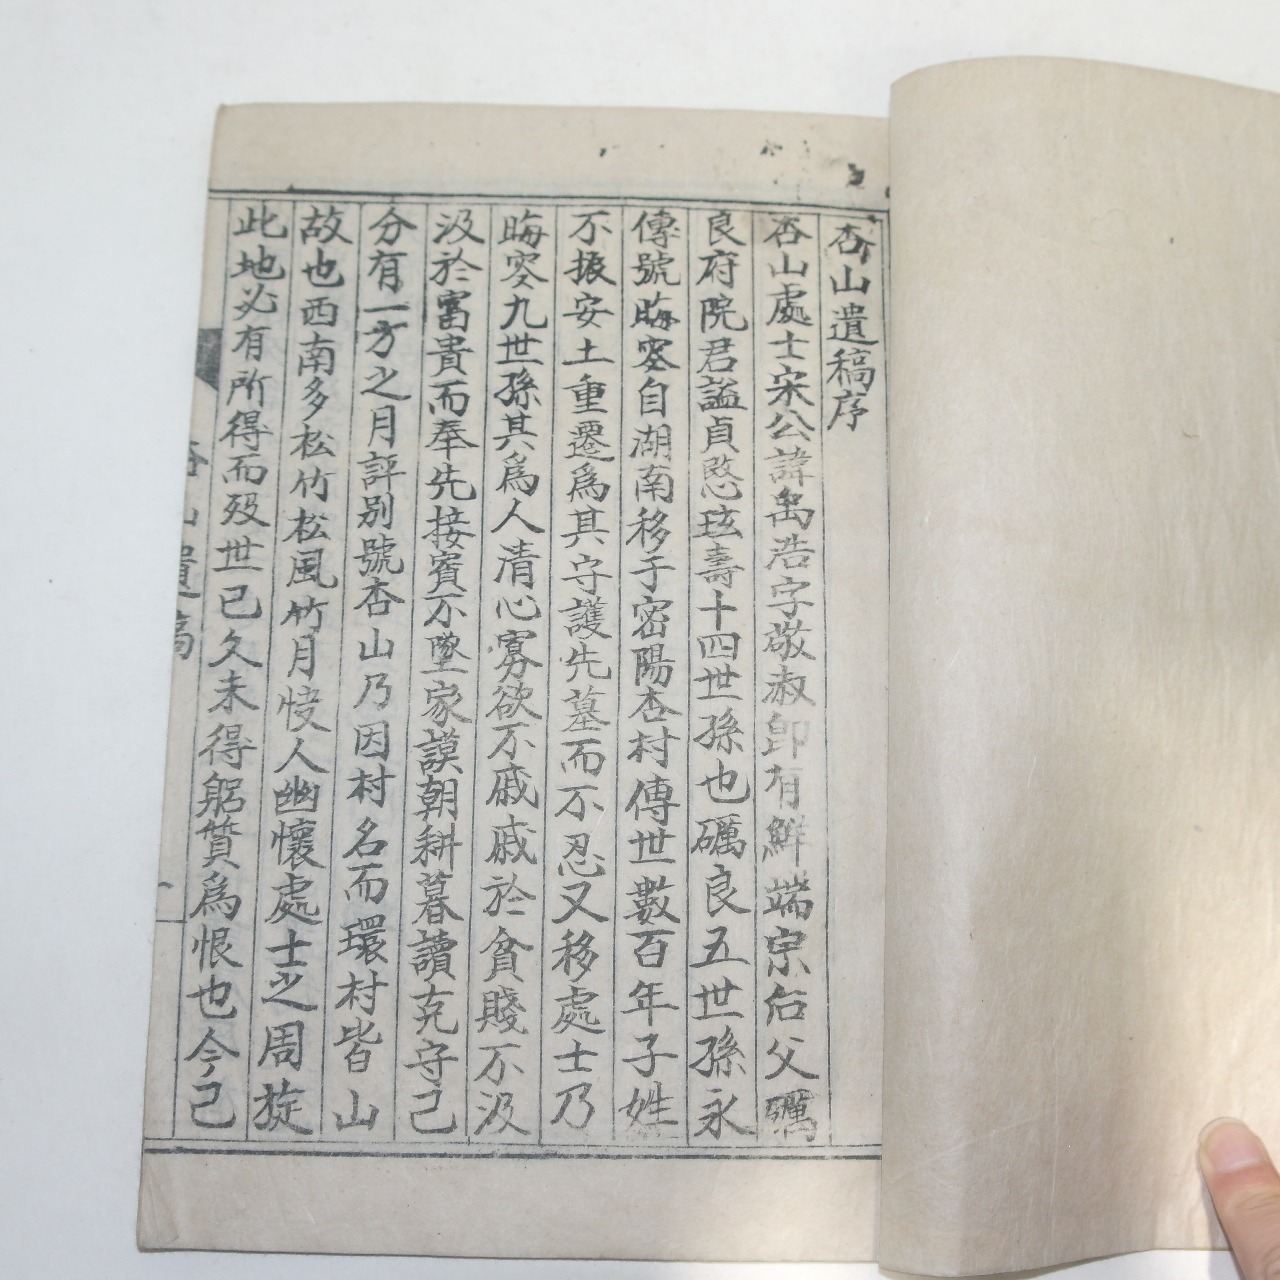 杏山遺稿序
杏山處士宋公諱禹浩字敬叔卽有鮮端宗岳父礪
良府院君諡貞愍玹壽十四世孫也礪良五世孫永
傳號晦窓自湖南移于密陽杏村傳世數百年子姓
不振安土重遷爲其守護先墓而不忍又移處士乃
晦窓九世孫其爲人清心寡欲不戚戚於貧賤不汲
汲於富貴而奉先接賓不墜家謨朝耕暮讀克守己
分有一方之月評別號杏山乃因村名而環村皆山
故也西南多松竹松風竹月悽人幽懷處士之周旋
此地必有所得而歿世已久未得躬質爲恨也今己
杏山遺稿
一